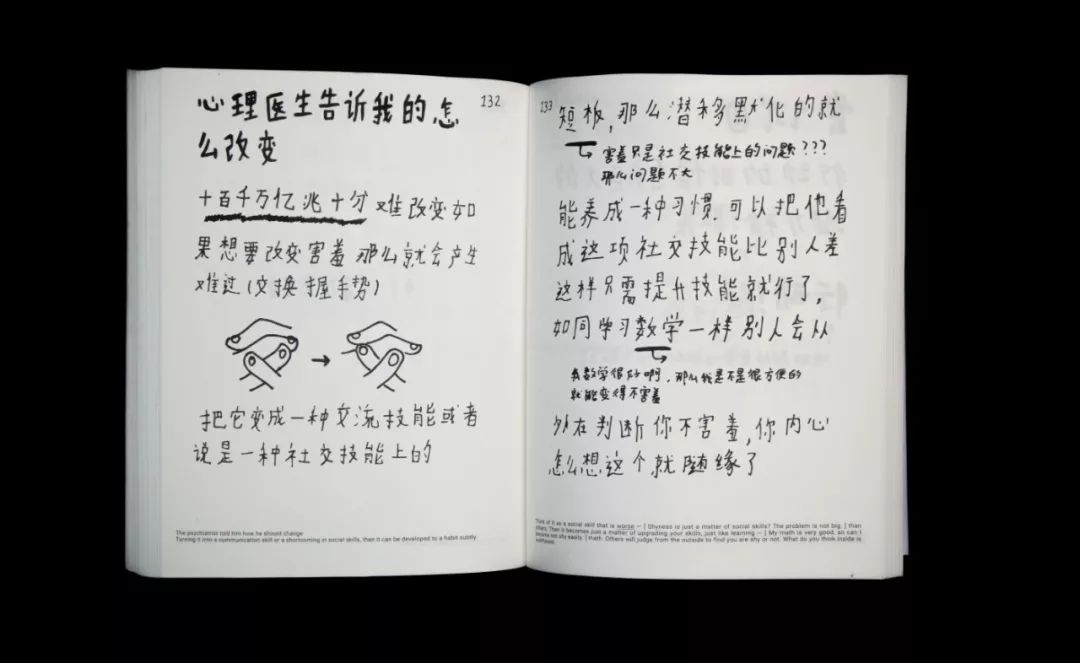 132
心理医生告诉我的,怎
么改变
十百千万亿兆十分难改变如
果想要改变害羞那么就会产生
难过(交换握手势)
把它变成一种交流技能或者
说是一种社交技能上的
The psychiatrist told him how he should change
Turning it into a communication skill or a shortcoming in social skills, then it can be developed to a habit subtly
133
短板,那么潜移默化的就
害羞只是社交技能上的问题???
那么问题不大
能养成一种习惯.可以把他看
成这项社交技能比别人差
这样只需提升技能就行了,
如同学习数学一样别人会从
我数学很好啊,那么我是不是很方便的
就能变得不害羞
外在判断你不害羞,你内心
怎么想这个就随缘了
Think of it as a social skill that is worse — [ Shyness is just a matter of social skills? The problem is not big. ] than
others. Then it becomes just a matter of upgrading your skills, just like learning — [ My math is very good, so can I
become not shy easily. ] math. Others will judge from the outside to find you are shy or not. What do you think inside is